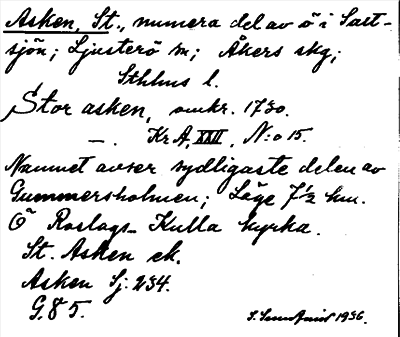 Asken, St., numera del av ö i Salt-
sjön; Ljusterö sn; Åkers skg;
Sthlms l.
Stor asken, omkr. 1730.
—. Kr A, XXII, N:o 15.
Namnet avser sydligaste delen av
Gummersholmen; Läge 7½ km.
Ö Roslags-Kulla kyrka.
St. Asken ek.
Asken Sj: 234.
G. 85.
1936.